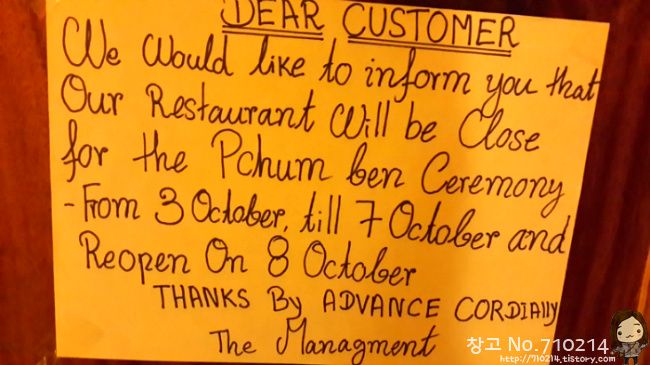 DEAR CUSTOMER
We Would like to inform you that
Our Restaurant Will be Close
for the Pchum ben Ceremony
- From 3 October, till 7 October and
Reopen On 8 October
THANKS By ADVANCE CORDIALLY
The Managment
창고 No.710214
http://710214.tistory.com